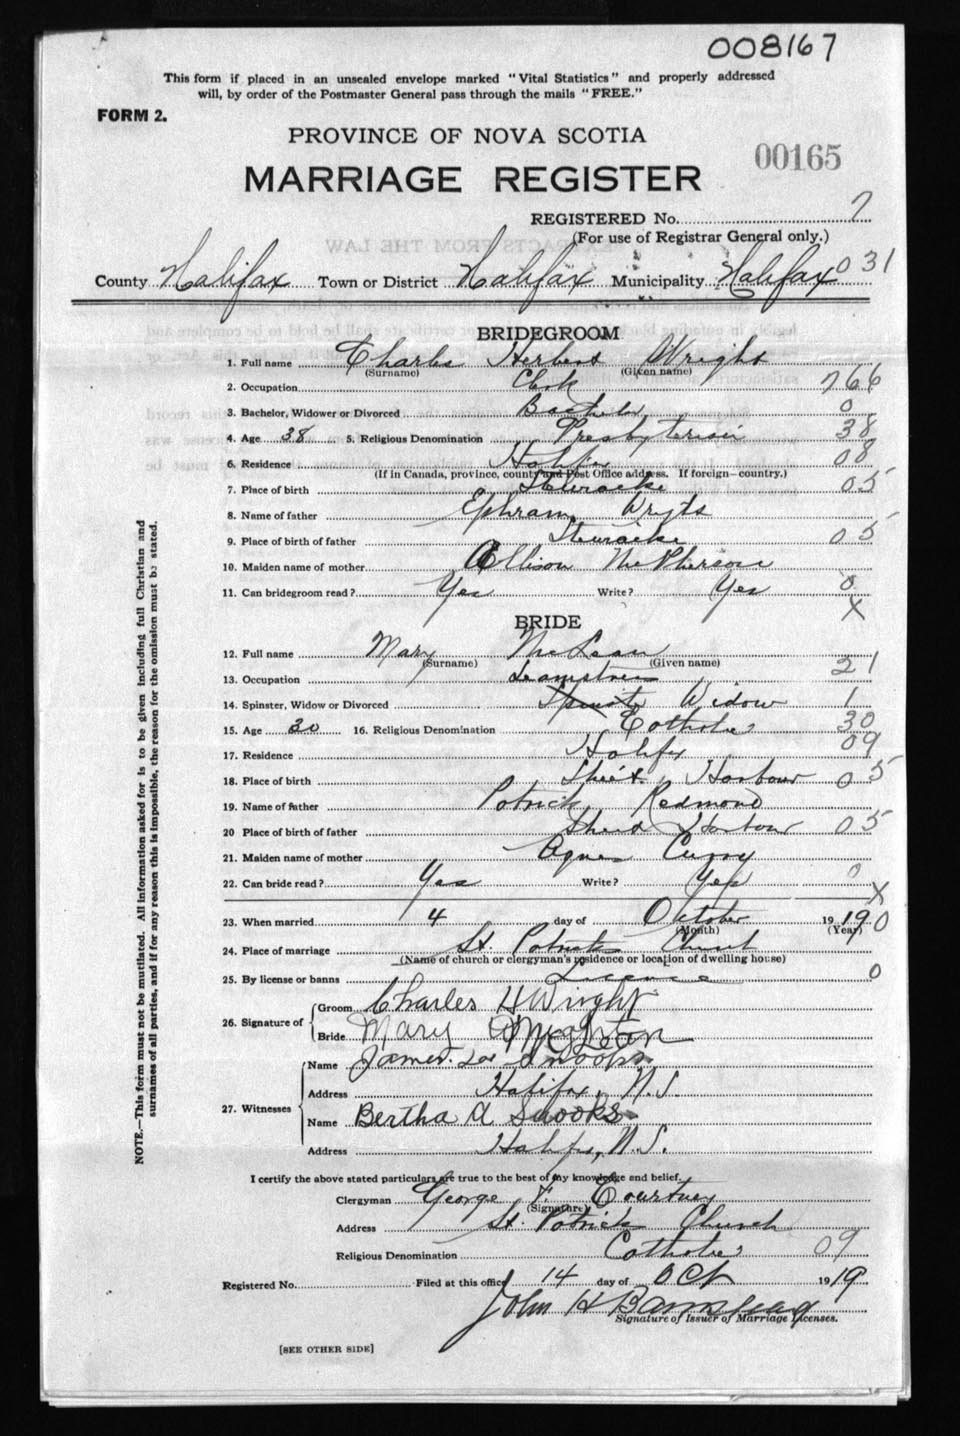 008167
This form if placed in an unsealed envelope marked "Vital Statistics" and properly addressed
will, by order of the Postmaster General pass through the mails "FREE."
FORM 2.
PROVINCE OF NOVA SCOTIA
00165
MARRIAGE REGISTER
REGISTERED No. 7
(For use of Registrar General only.)
County Halifax Town or District Halifax Municipality Halifax 031
BRIDEGROOM
1. Full name Charles Herbert Wright
(Surname) (Given name)
2. Occupation Clerk 766
3. Bachelor, Widower or Divorced Bachelor 0
4. Age 38 5. Religious Denomination Presbyterian 38
6. Residence Halifax 08
(If in Canada, province, county and Post Office address. If foreign—country.)
7. Place of birth Stewiacke 05
8. Name of father Ephram
9. Place of birth of father Stewiacke 05
10. Maiden name of mother Allison McPherson
11. Can bridegroom read? Yes Write? Yes 0
X
BRIDE
12. Full name Mary McLean
(Surname) (Given name)
13. Occupation Seamstress 21
14. Spinster, Widow or Divorced Spinster Widow 1
15. Age 30 16. Religious Denomination Catholic 30
17. Residence Halifax 09
18. Place of birth Sheet Harbour 05
19. Name of father Patrick Redmond
20 Place of birth of father Sheet Harbour 05
21. Maiden name of mother Agnes Curry
22. Can bride read? Yes Write? Yes 0
X
23. When married 4 day of October 1919 0
(Month) (Year)
24. Place of marriage St. Patrick Church
(Name of church or clergyman's residence or location of dwelling house)
25. By license or banns Licence 0
26. Signature of Groom Charles H Wright
Bride Mary
27. Witnesses Name James
Address Halifax, N.S.
Name Bertha A Snooks
Address Halifax, N.S.
I certify the above stated particulars are true to the best of my knowledge and belief.
Clergyman George F. Courtney
(Signature)
Address St. Patrick Church
Religious Denomination Catholic 09
Registered No. Filed at this office 14 day of Oct 1919
John H Barnstead
Signature of Issuer of Marriage Licenses.
[SEE OTHER SIDE]
NOTE.—This form must not be mutilated. All information asked for is to be given including full Christian and
surnames of all parties, and if for any reason this is impossible, the reason for the omission must be stated.